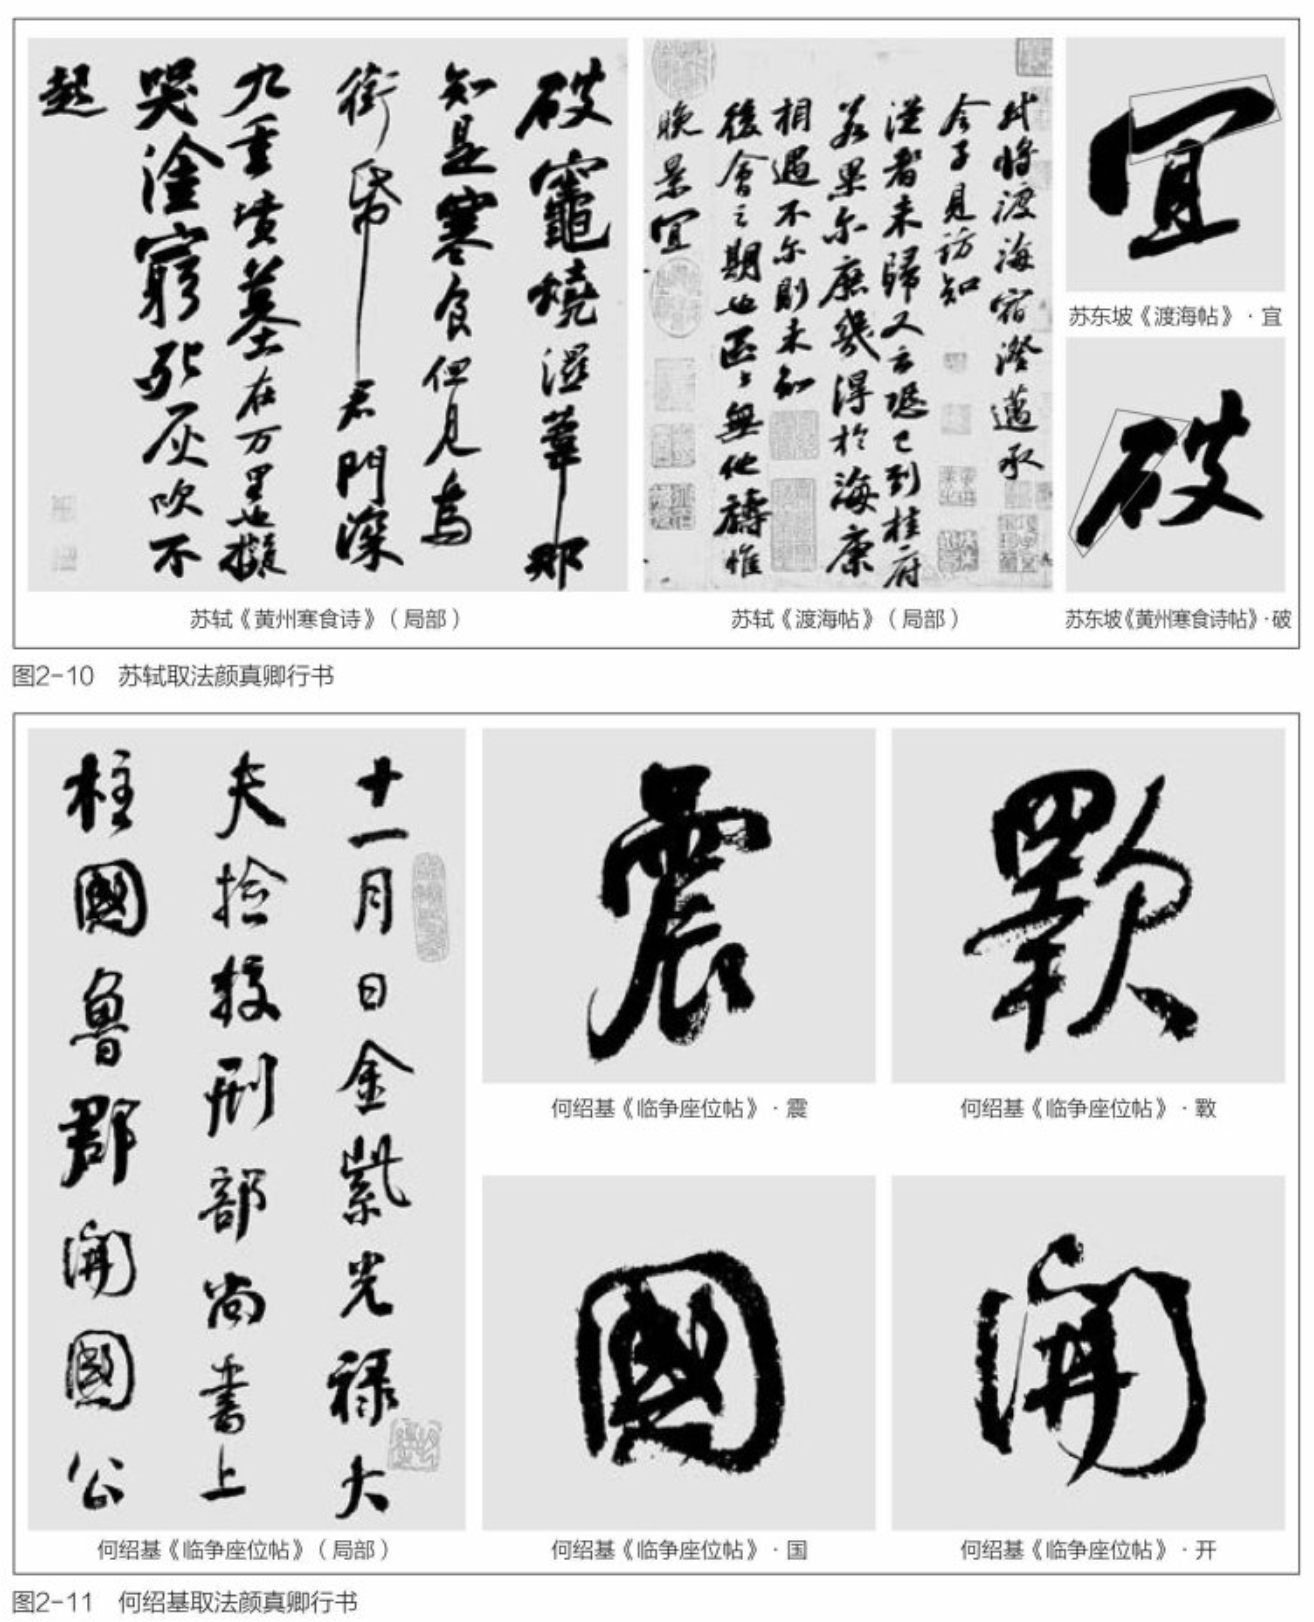 破竈燒濕葦那
知是寒食但見烏
銜帋君門深
九重墳墓在万里也擬
哭塗窮死灰吹不
起
苏轼《黄州寒食诗》（局部）
軾將渡海宿澄邁承
令子見訪知
從者未歸又云恐已到桂府
若果尔庶幾得於海康
相遇不尔則未知
後會之期也區區無他禱惟
晚景宜
苏轼《渡海帖》（局部）
宜
苏东坡《渡海帖》·宜
破
苏东坡《黄州寒食诗帖》·破
图2-10 苏轼取法颜真卿行书
十一月日金紫光禄大
夫捡挍刑部尚書上
柱國魯郡開國公
何绍基《临争座位帖》（局部）
震
何绍基《临争座位帖》·震
何绍基《临争座位帖》·斁
國
何绍基《临争座位帖》·国
開
何绍基《临争座位帖》·开
图2-11 何绍基取法颜真卿行书